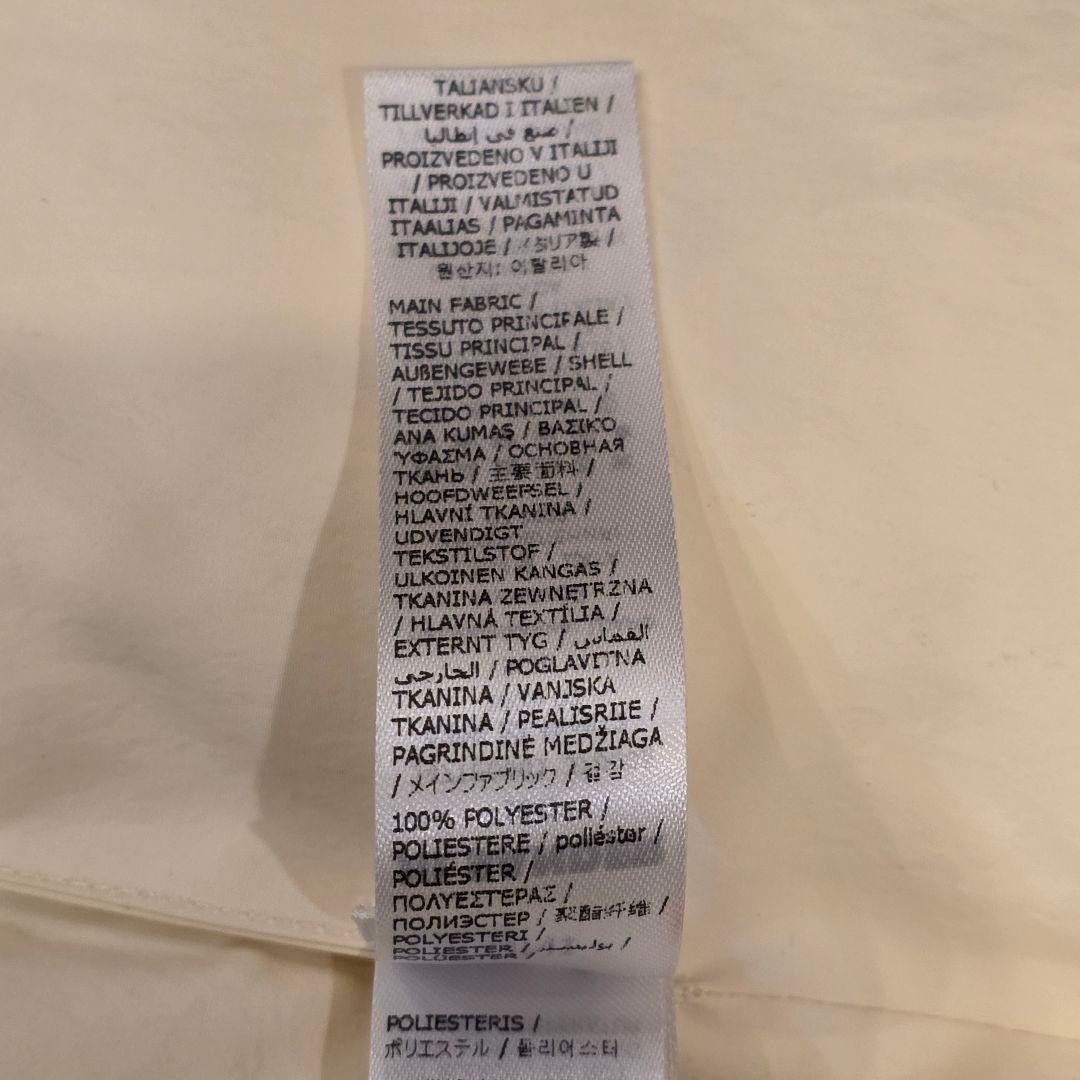 TALIANSKU /
TILLVERKAD I ITALIEN /
صنع في إيطاليا /
PROIZVEDENO V ITALIJI
/ PROIZVEDENO U
ITALIJI / VALMISTATUD
ITAALIAS / PAGAMINTA
ITALIJOJE / イタリア製 /
원산지: 이탈리아
MAIN FABRIC /
TESSUTO PRINCIPALE /
TISSU PRINCIPAL /
AUßENGEWEBE / SHELL
/ TEJIDO PRINCIPAL /
TECIDO PRINCIPAL /
ANA KUMAŞ / ΒΑΣΙΚΟ
ΎΦΑΣΜΑ / ОСНОВНАЯ
ТКАНЬ / 主要面料 /
HOOFDWEEFSEL /
HLAVNÍ TKANINA /
UDVENDIGT
TEKSTILSTOF /
ULKOINEN KANGAS /
TKANINA ZEWNĘTRZNA
/ HLAVNÁ TEXTÍLIA /
EXTERNT TYG / القماش
الخارجي / POGLAVITNA
TKANINA / VANJSKA
TKANINA / PEALISRIIE /
PAGRINDINĖ MEDŽIAGA
/ メインファブリック / 겉감
100% POLYESTER /
POLIESTERE / poliéster /
POLIÉSTER /
ΠΟΛΥΕΣΤΕΡΑΣ /
ПОЛИЭСТЕР / 聚酯纤维 /
POLYESTERI /
POLIESTER / بوليستر /
POLÜESTER /
POLIESTERIS /
ポリエステル / 폴리에스터